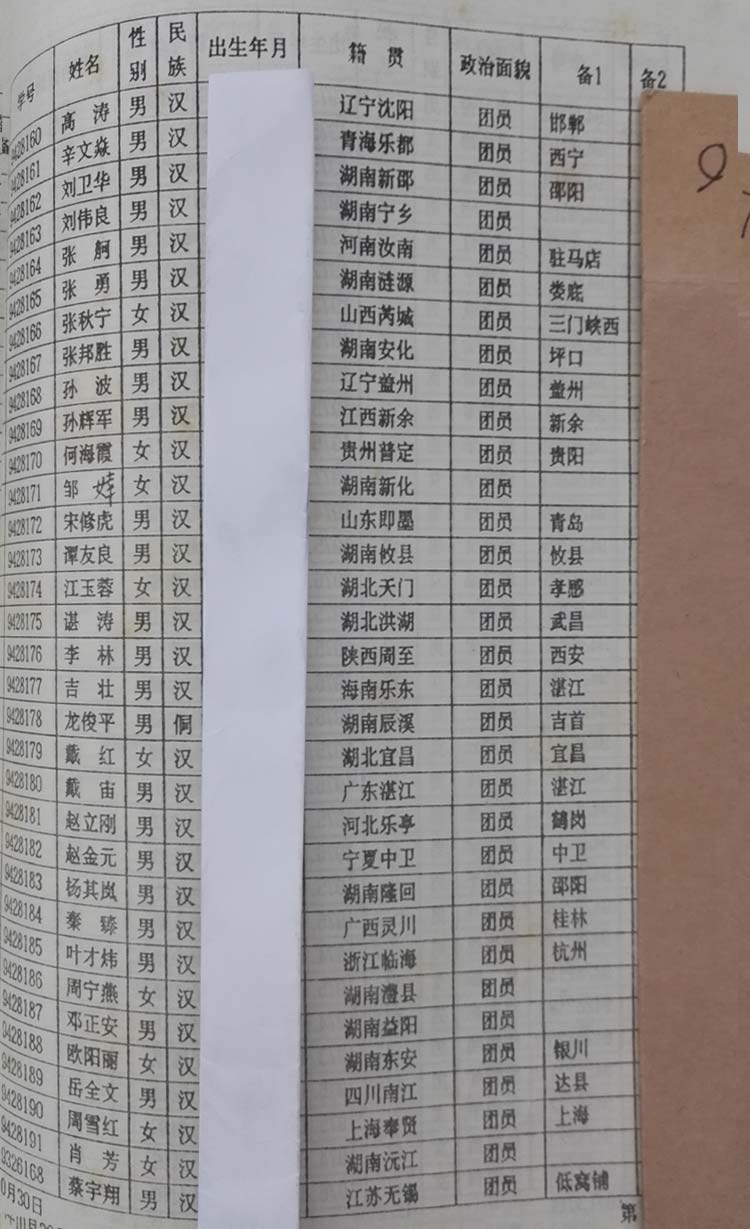 学号 姓名 性别 民族 出生年月 籍贯 政治面貌 备1 备2
9428160 高涛 男 汉 辽宁沈阳 团员 邯郸
9428161 辛文焱 男 汉 青海乐都 团员 西宁
9428162 刘卫华 男 汉 湖南新邵 团员 邵阳
9428163 刘伟良 男 汉 湖南宁乡 团员
9428164 张舸 男 汉 河南汝南 团员 驻马店
9428165 张勇 男 汉 湖南涟源 团员 娄底
9428166 张秋宁 女 汉 山西芮城 团员 三门峡西
9428167 张邦胜 男 汉 湖南安化 团员 坪口
9428168 孙波 男 汉 辽宁盖州 团员 盖州
9428169 孙辉军 男 汉 江西新余 团员 新余
9428170 何海霞 女 汉 贵州普定 团员 贵阳
9428171 邹 女 汉 湖南新化 团员
9428172 宋修虎 男 汉 山东即墨 团员 青岛
9428173 谭友良 男 汉 湖南攸县 团员 攸县
9428174 江玉蓉 女 汉 湖北天门 团员 孝感
9428175 谌涛 男 汉 湖北洪湖 团员 武昌
9428176 李林 男 汉 陕西周至 团员 西安
9428177 吉壮 男 汉 海南乐东 团员 湛江
9428178 龙俊平 男 侗 湖南辰溪 团员 吉首
9428179 戴红 女 汉 湖北宜昌 团员 宜昌
9428180 戴宙 男 汉 广东湛江 团员 湛江
9428181 赵立刚 男 汉 河北乐亭 团员 鹤岗
9428182 赵金元 男 汉 宁夏中卫 团员 中卫
9428183 杨其岚 男 汉 湖南隆回 团员 邵阳
9428184 秦臻 男 汉 广西灵川 团员 桂林
9428185 叶才炜 男 汉 浙江临海 团员 杭州
9428186 周宁燕 女 汉 湖南澧县 团员
9428187 邓正安 男 汉 湖南益阳 团员
9428188 欧阳丽 女 汉 湖南东安 团员 银川
9428189 岳全文 男 汉 四川南江 团员 达县
9428190 周雪红 女 汉 上海奉贤 团员 上海
9428191 肖芳 女 汉 湖南沅江 团员
9326168 蔡宇翔 男 汉 江苏无锡 团员 低窝铺
0月30日
第